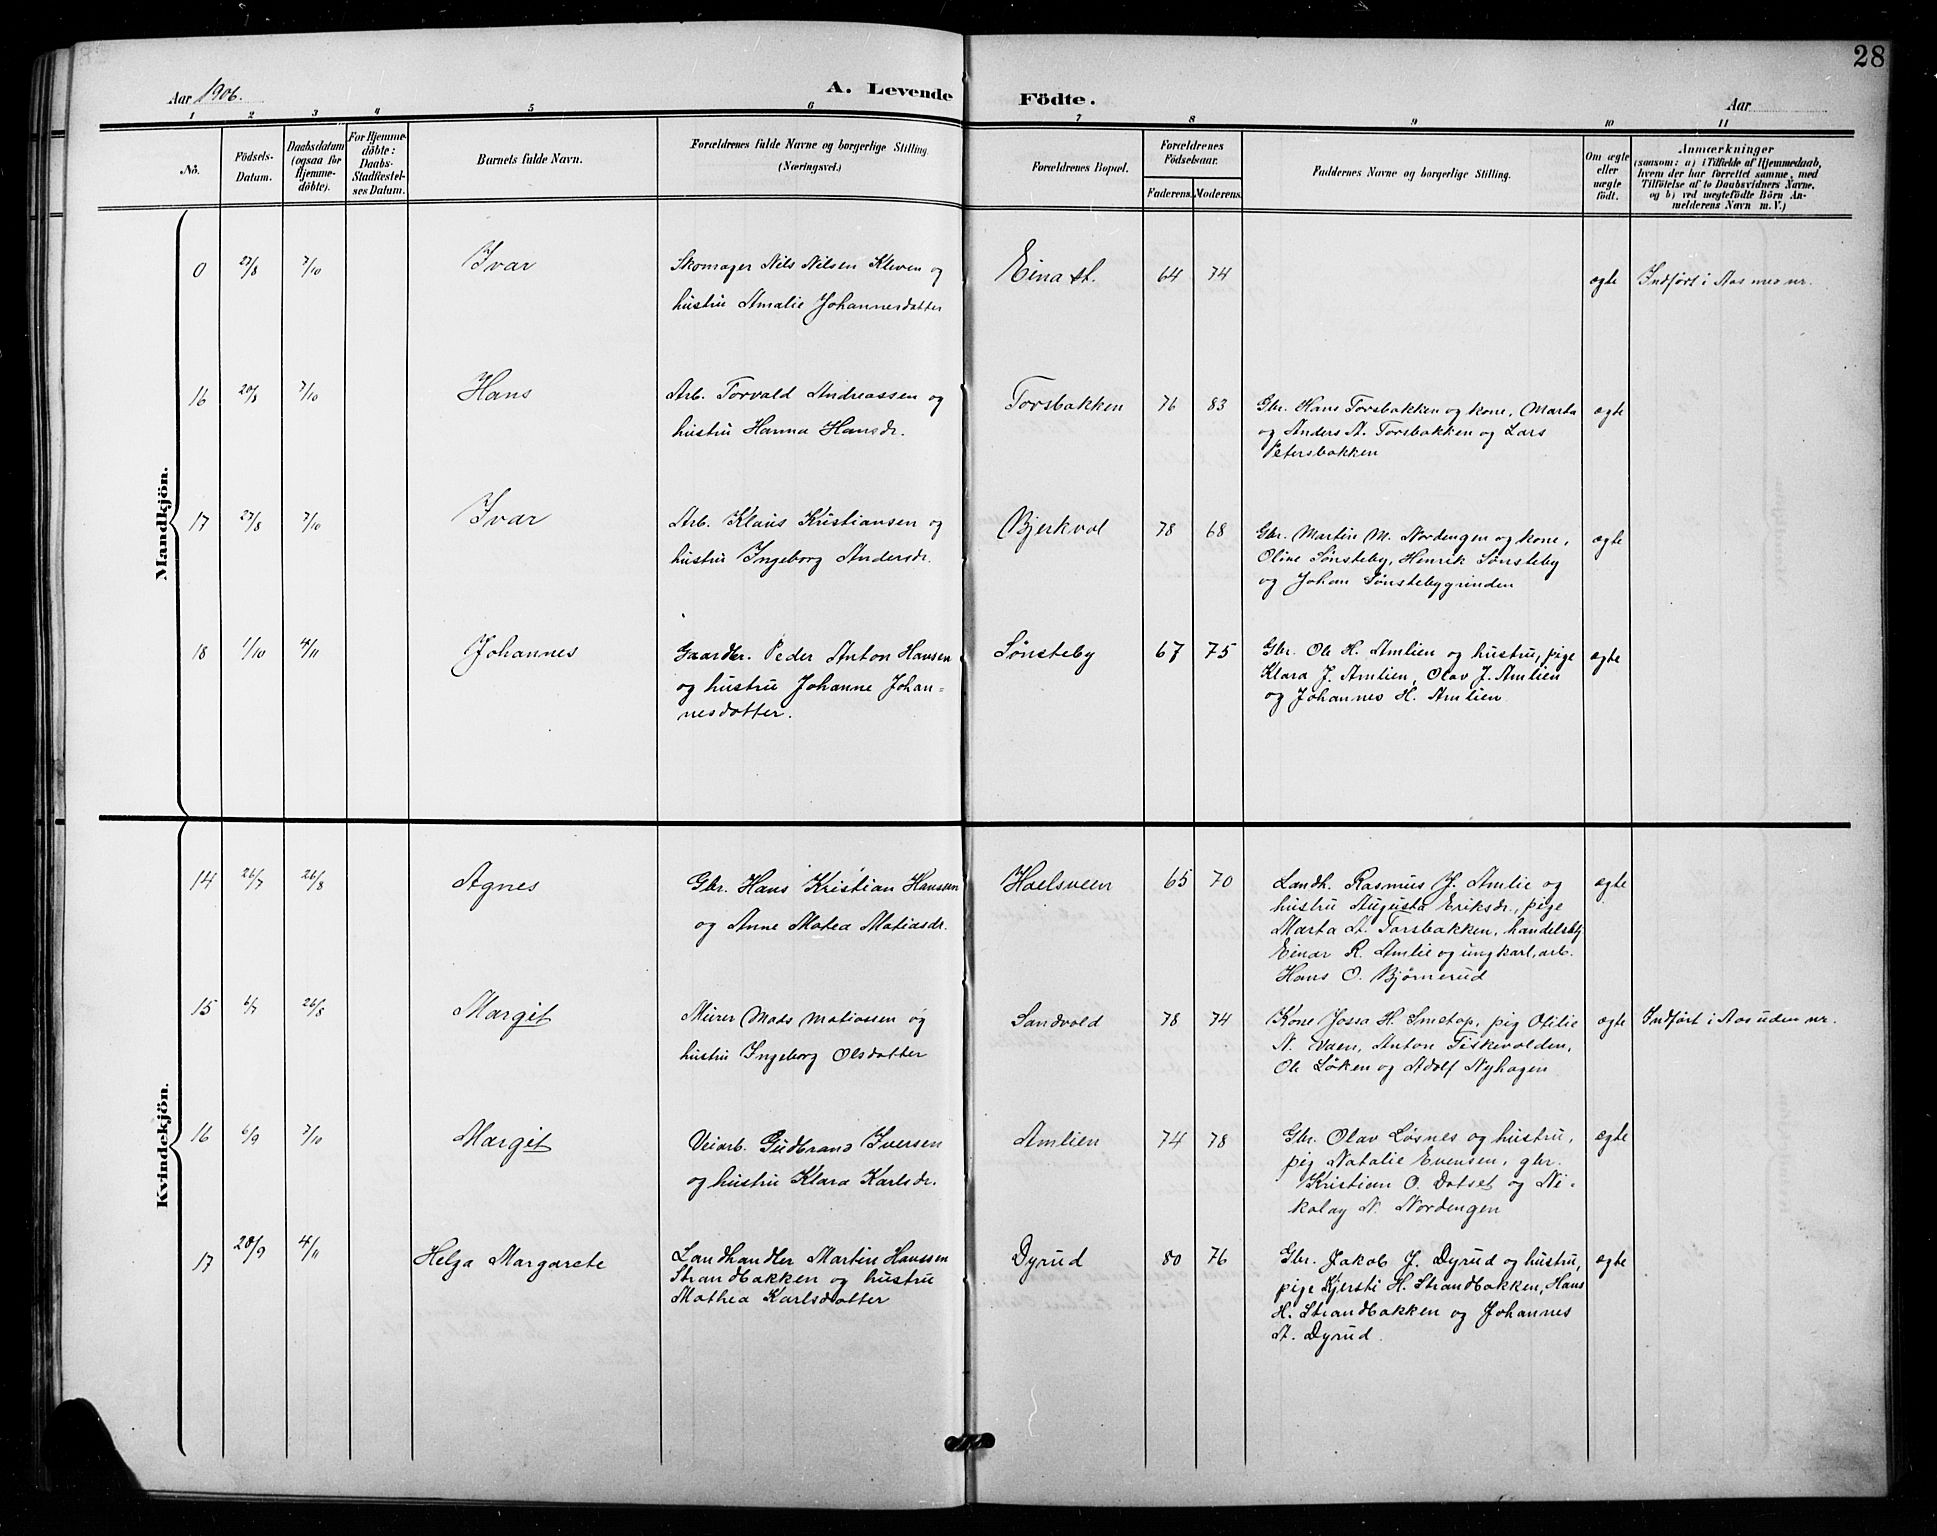 28
Aar 1906.
A. Levende Födte.
Aar
1 2 3 4 5 6 7 8 9 10 11
No.
Födsels-
Datum.
Daabsdatum
(ogsaa for
Hjemme-
döbte).
For Hjemme-
döbte:
Daabs-
Stadfæstel-
ses Datum.
Barnets fulde Navn.
Forældrenes fulde Navne og borgerlige Stilling.
(Næringsvei.)
Forældrenes Bopæl.
Forældrenes
Födselsaar.
Faderens. Moderens.
Faddernes Navne og borgerlige Stilling.
Om ægte
eller
uægte
födt.
Anmærkninger
(saasom: a) i Tilfælde af Hjemmedaab,
hvem der har forrettet samme, med
Tilföielse af to Daabsvidners Navne,
og b) ved uægtefödte Börn An-
melderens Navn m. V.)
Mandkjön.
0 27/8 7/10 Ivar
Skomager Nils Nilsen Kleven og
hustru Amalie Johannesdatter
Eina st. 64 74 ægte Indført i Aas med nr.
16 20/8 7/10 Hans
Arb. Torvald Andreassen og
hustru Hanna Hansdr.
Torsbakken 76 83
Gbr. Hans Torsbakken og kone, Marta
og Anders A. Torsbakken og Lars
Petersbakken
ægte
17 27/8 7/10 Ivar
Arb. Klaus Kristiansen og
hustru Ingeborg Andersdr.
Bjerkvol 78 68
Gbr. Martin M. Nordengen og kone,
Oline Sønsteby, Henrik Sønsteby
og Johan Sønstebygrinden
ægte
18 1/10 4/11 Johannes
Gaardbr. Peder Anton Hansen
og hustru Johanne Johan-
nesdatter.
Sønsteby 67 75
Gbr. Ole H. Amlien og hustru, pige
Klara J. Amlien, Olav J. Amlien
og Johannes H. Amlien
ægte
Kvindekjön.
14 26/7 26/8 Agnes
Gbr. Hans Kristian Hansen
og Anne Matea Matiasdr.
Haelsveen 65 70
Landh. Rasmus J. Amlie og
hustru Augusta Eriksdr., pige
Marta A. Torsbakken, handelsbtj
Einar R. Amlie og ungkarl, arb.
Hans O. Bjørnerud
ægte
15 6/7 26/8 Margit
Murer Mads Matiassen og
hustru Ingeborg Olsdatter
Sandvold 78 74
Kone Jossa H. Smetop, pig Otilie
N. Vaen, Anton Fiskevolden,
Ole Løken og Adolf Nyhagen
ægte Indført i Aas uden nr.
16 6/9 7/10 Margit
Veiarb. Gudbrand Iversen
og hustru Klara Karlsdr.
Amlien 74 78
Gbr. Olav Løsnes og hustru,
pig Natalie Evensen, gbr.
Kristian O. Dotset og Ni-
kolay N. Nordengen
ægte
17 20/9 4/11 Helga Margarete
Landhandler Martin Hansen
Strandbakken og hustru
Mathea Karlsdatter
Dyrud 80 76
Gbr. Jakob J. Dyrud og hustru,
pige Kjersti H. Strandbakken, Hans
H. Strandbakken og Johannes
A. Dyrud.
ægte